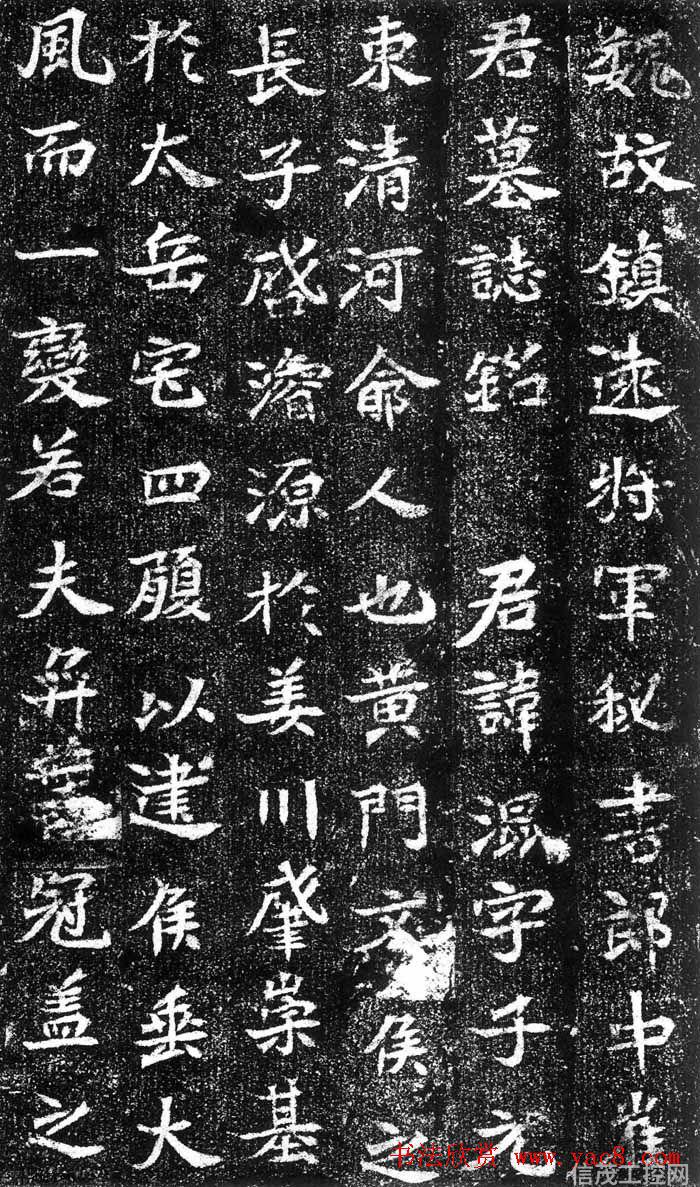 魏故鎮遠將軍秘書郎中崔
君墓誌銘 君諱混字子元
東清河俞人也黄門文侯之
長子啓濬源於姜川肇崇基
於太岳宅四履以建侯垂大
風而一變若夫冠盖之
书法欣赏 www.yac8.com
信茂工控网